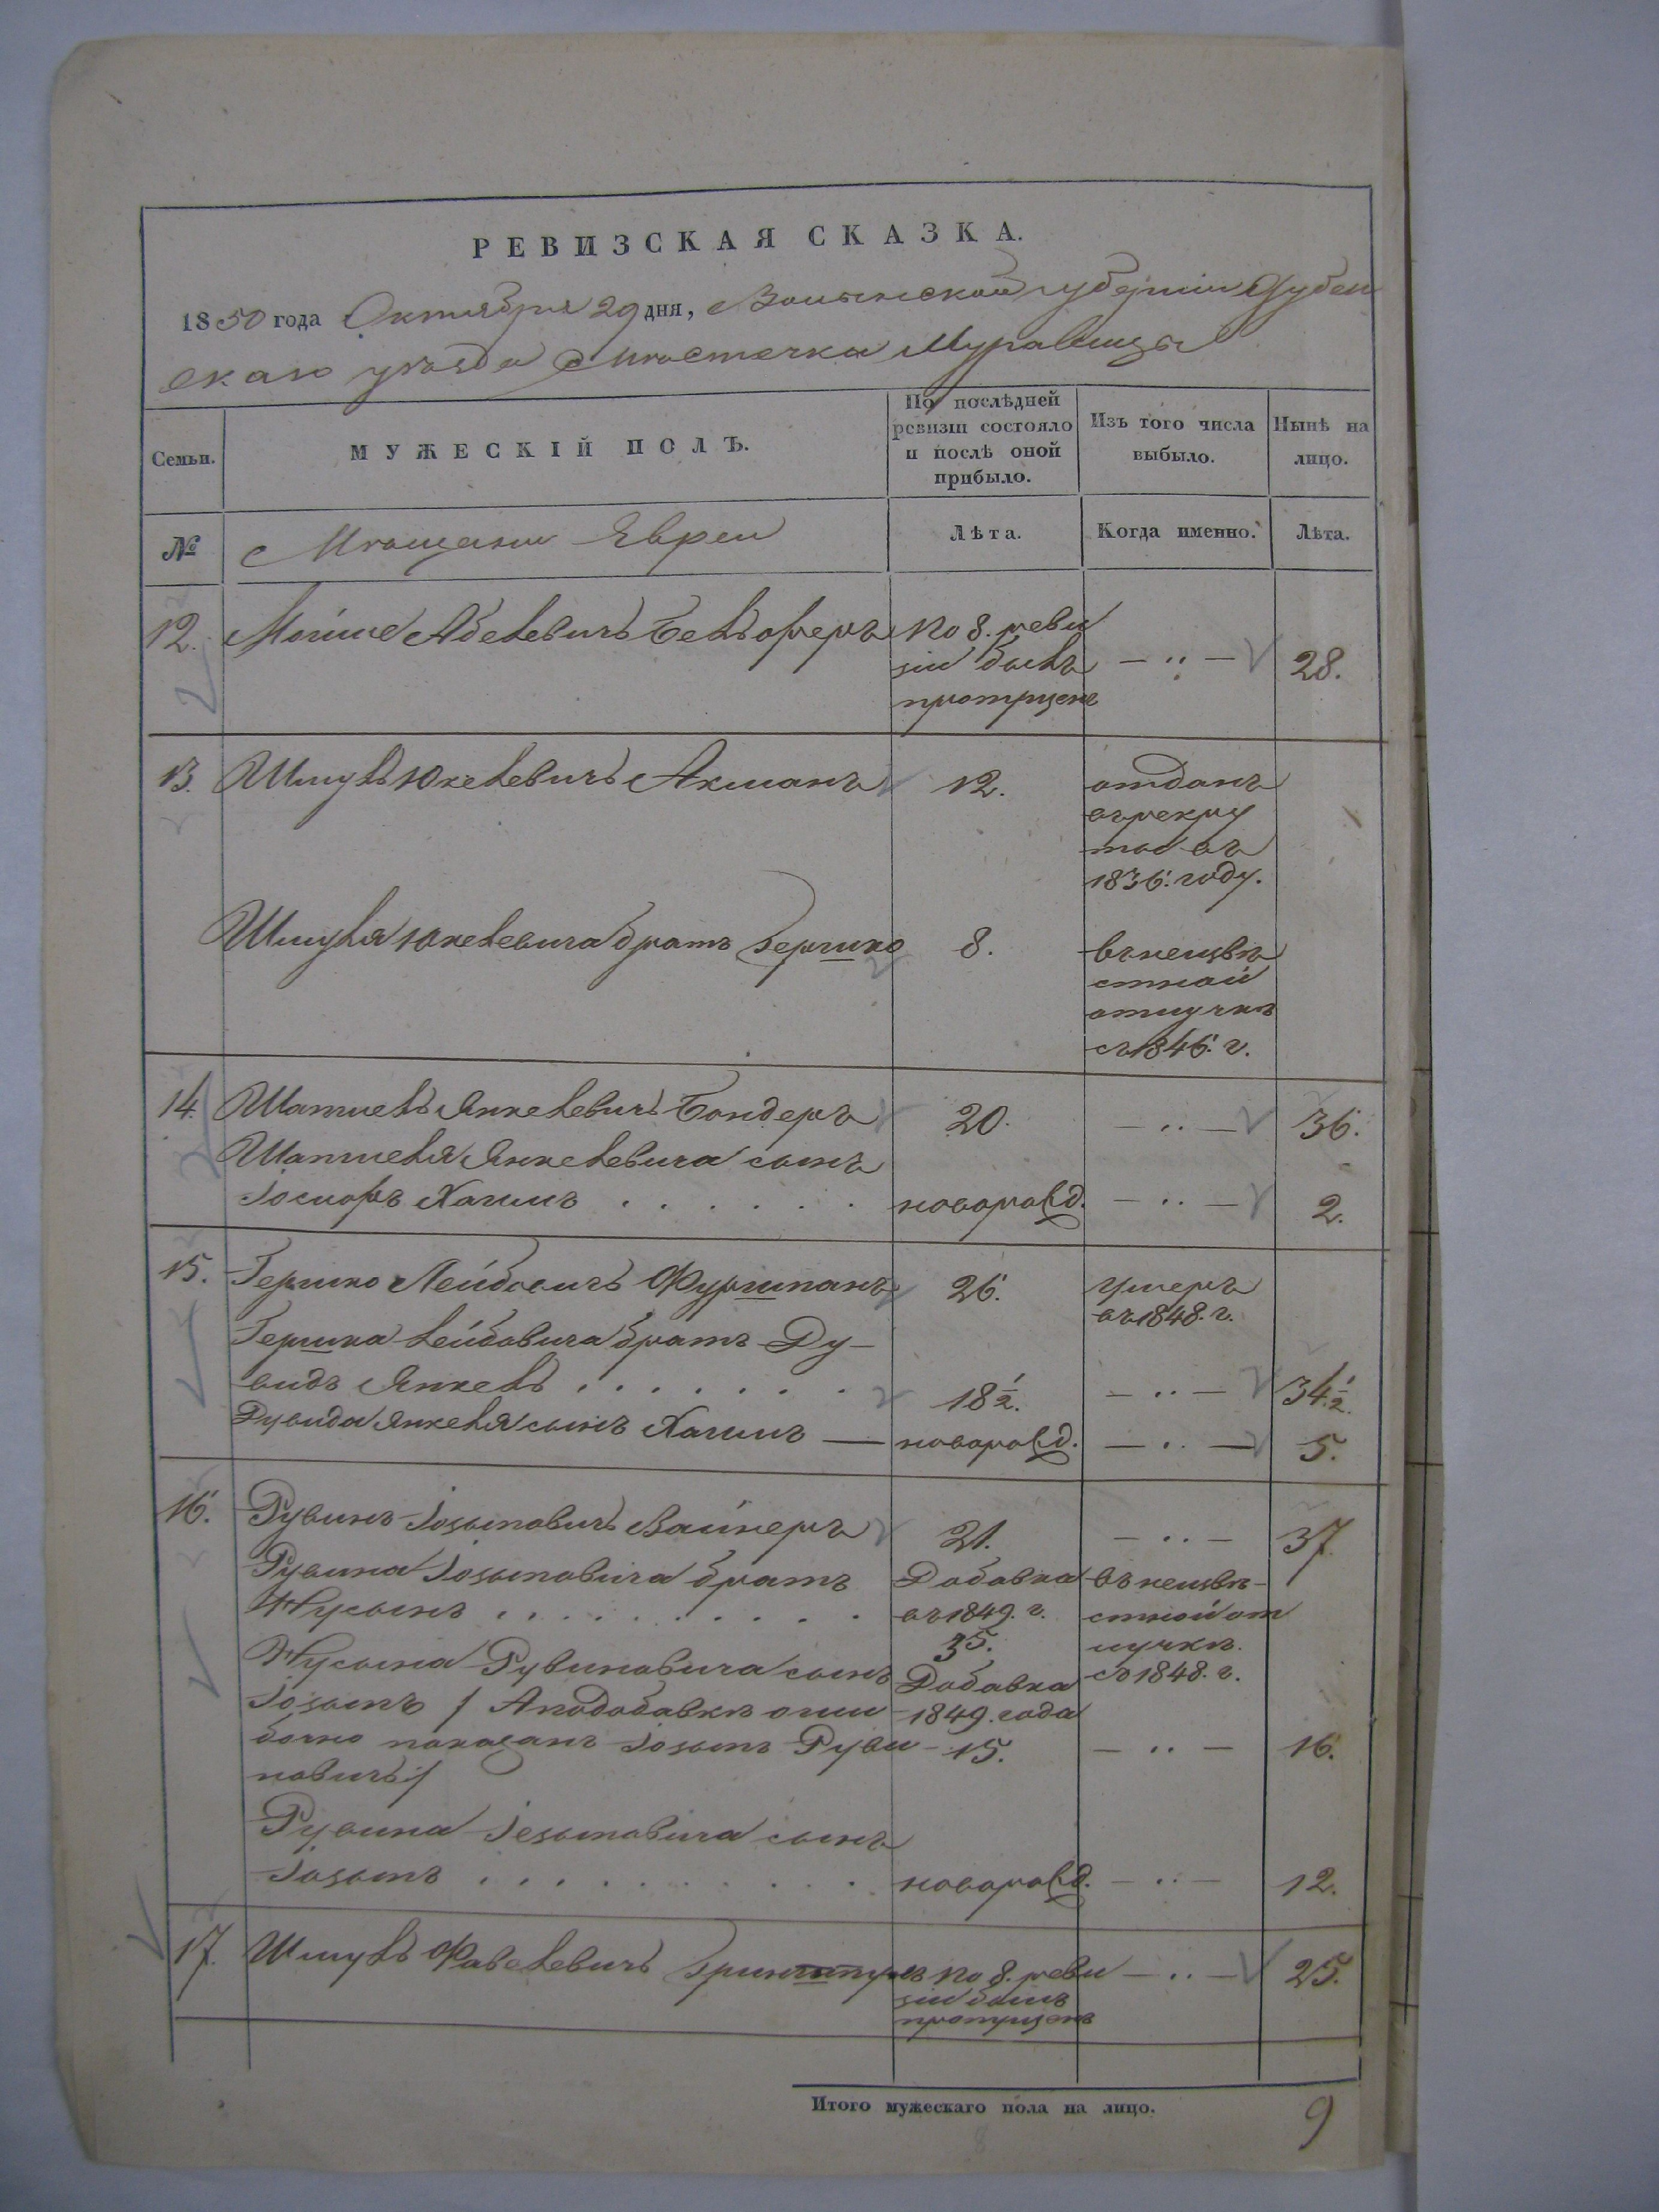 РЕВИЗСКАЯ СКАЗКА.
1850 года Октября 29 дня, Волынской губерніи Дубен
скаго уѣзда Мѣстечка Муравицы
Семьи.
МУЖЕСКІЙ ПОЛЪ.
По послѣдней
ревизіи состояло
и послѣ оной
прибыло.
Изъ того числа
выбыло.
Нынѣ на
лицо.
№
Мѣщани Евреи
Лѣта.
Когда именно.
Лѣта.
12. Мойше Абелевичъ по 8. реви
зіи былъ — ·· — 28.
пропущенъ
13. Шмуль Юкелевичъ Акманъ 12. отданъ
въ рекру
ты въ
1836. году.
Шмуля Юкелевича братъ Гершко 8. въ неизвѣ
стной
отлучкѣ
съ 1846. г.
14. Шапшель Янкелевичъ Бондеръ 20. — ·· — 36.
Шапшеля Янкелевича сынъ
Іосифъ Хаимъ . . . . . . новорожд. — ·· — 2.
15. Гершко Лейбовичъ Фурштанъ 26. умеръ
въ 1848. г.
Гершка Лейбовича братъ Ду-
видъ Янкель . . . . . . . 18 1/2. — ·· — 34 1/2.
Дувида Янкеля сынъ Хаимъ — новорожд. — ·· — 5.
16. Рувинъ Іозыповичъ Вайнеръ 21. — ·· — 37
Рувина Іозыповича братъ Добавка въ неизвѣ-
Нусынъ . . . . . . . . . въ 1849. г. стной от
35. лучкѣ
Нусына Рувиновича сынъ Добавка съ 1848. г.
Іозыпъ / А по добавкѣ оши 1849. года
бочно показанъ Іозыпъ Руви- 15. — ·· — 16.
новичъ /
Рувина Іозыповича сынъ
Іозыпъ . . . . . . . . . новорожд. — ·· — 12.
17. Шмуль Фавелевичъ по 8. реви — ·· — 25.
зіи былъ
пропущенъ
Итого мужескаго пола на лицо. 9